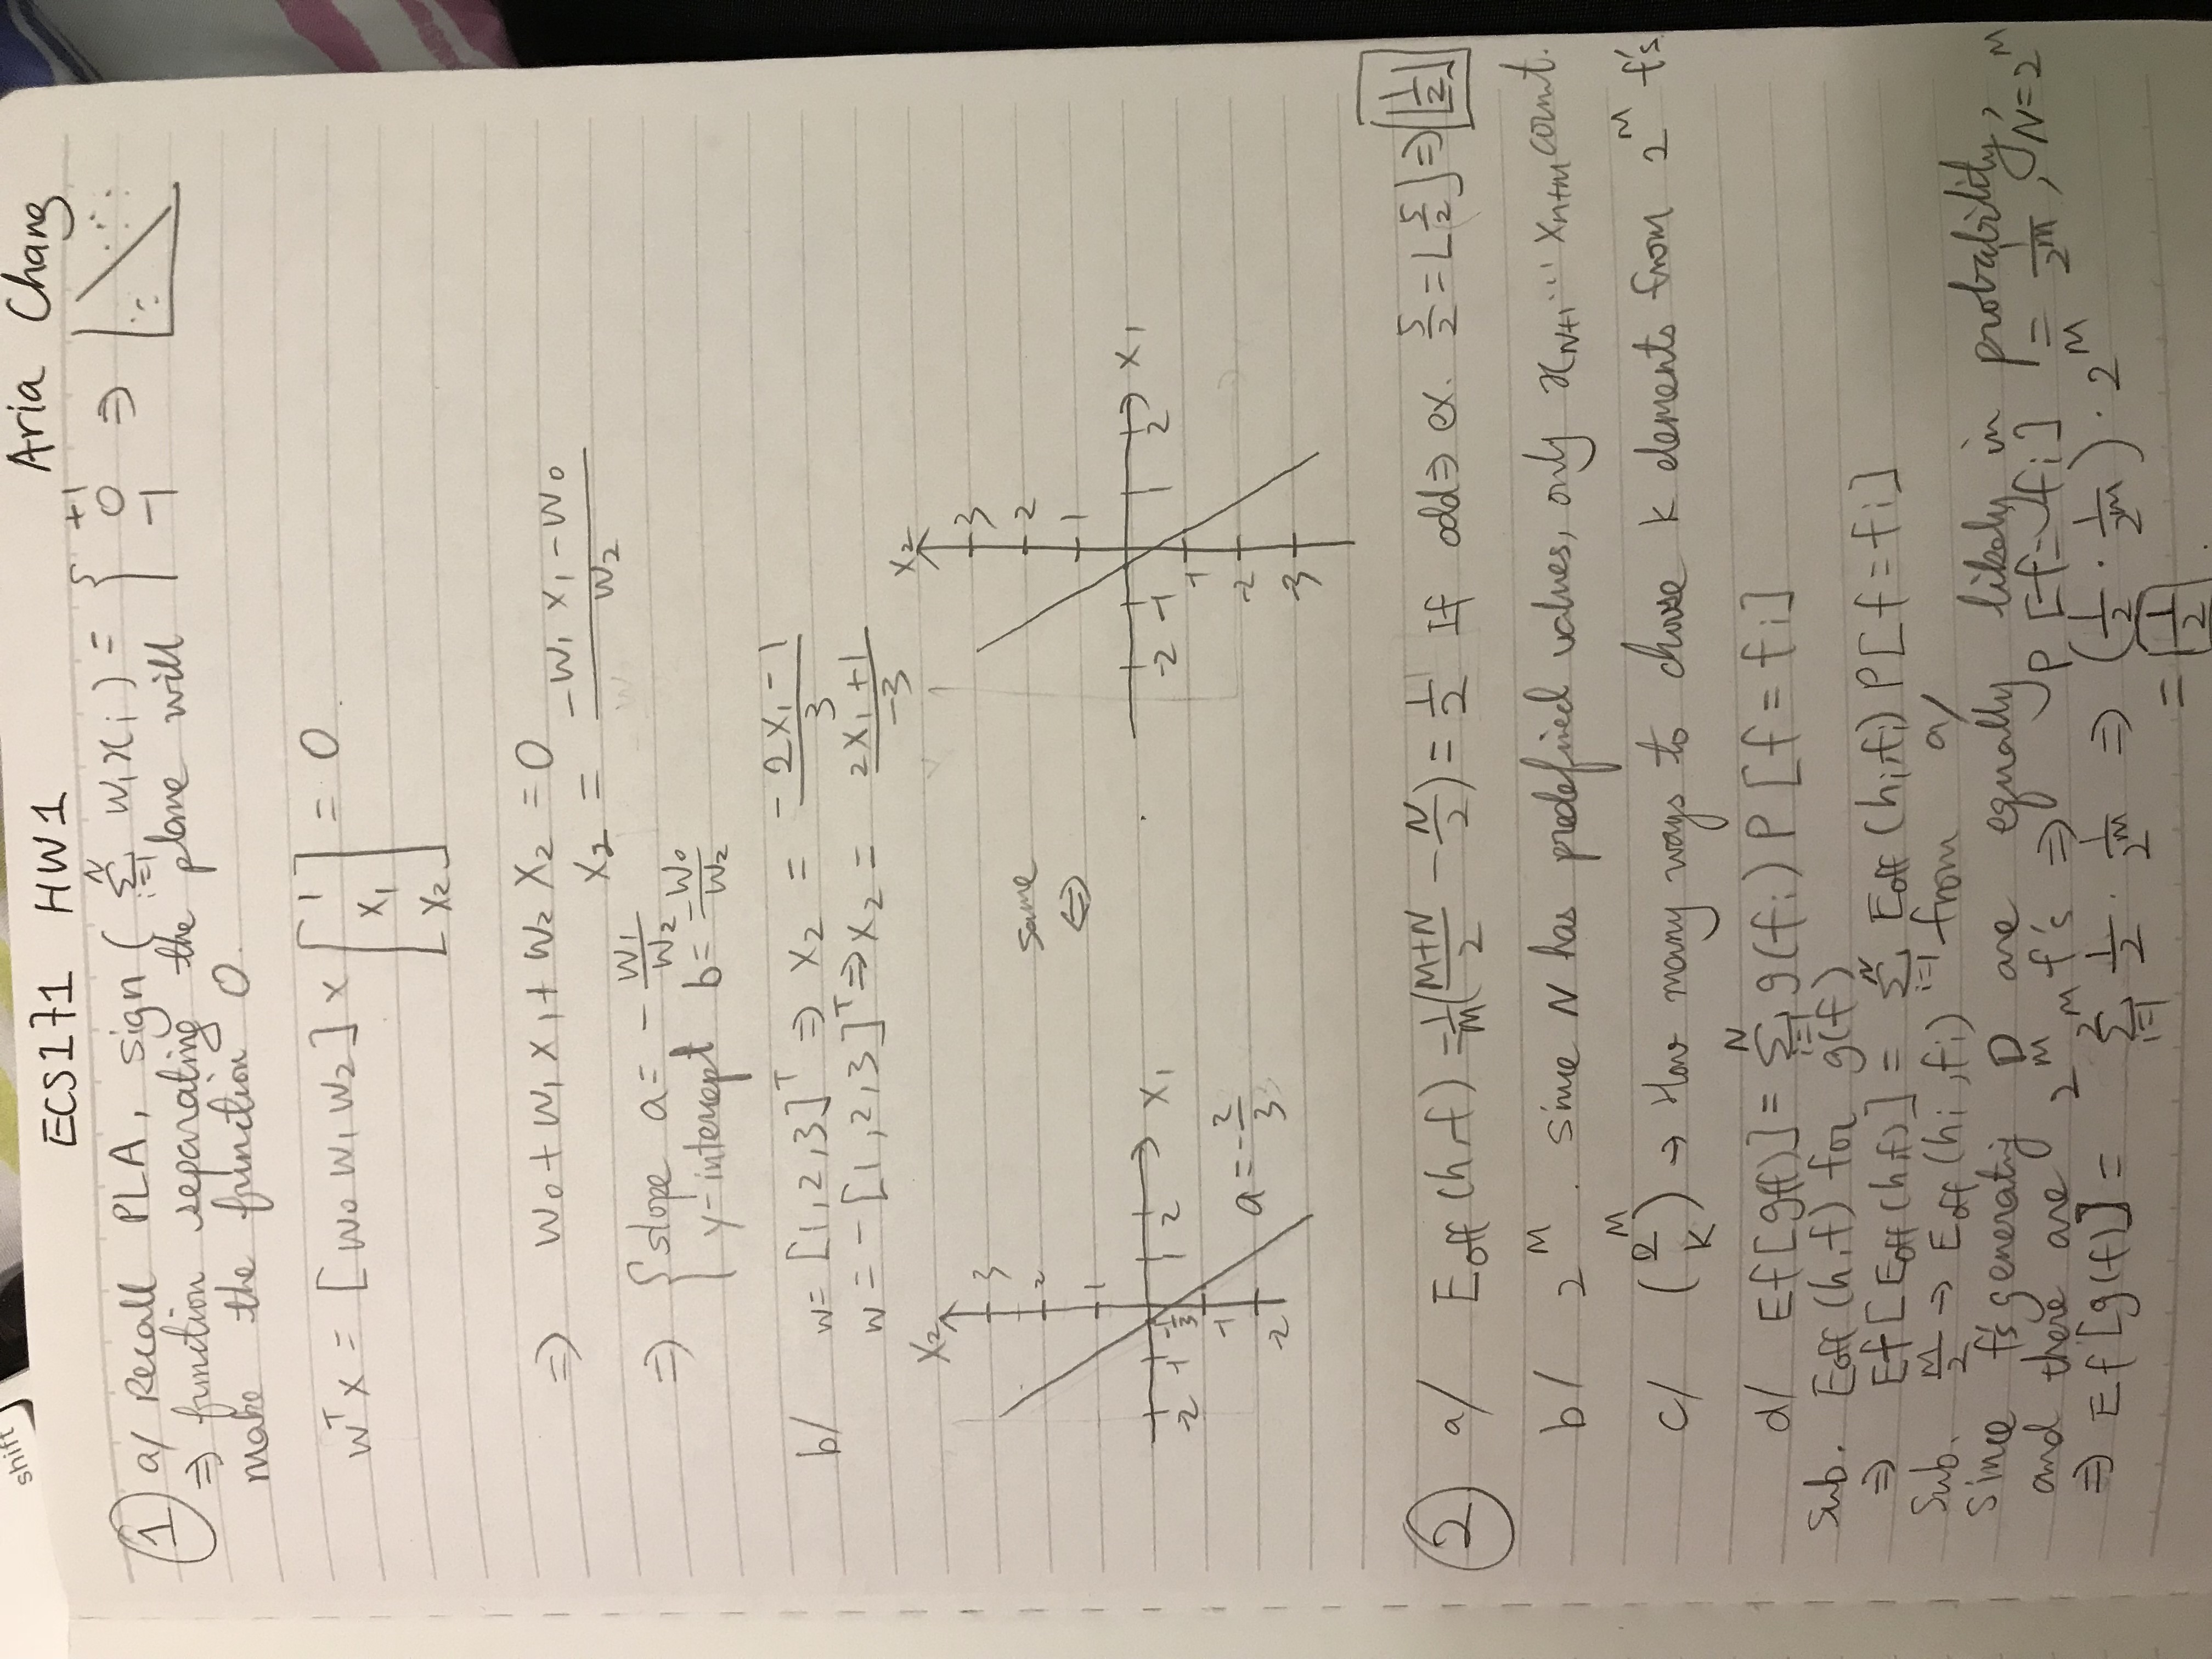 shift
ECS171 HW1 Aria Chang
① a/ Recall PLA, sign ( Σ_{i=1}^{N} w_i x_i ) = { +1 0 -1 ⇒
⇒ function separating the plane will
make the function 0.
w^T x = [w_0 w_1 w_2] × [1 x_1 x_2] = 0.
⇒ w_0 + w_1 x_1 + w_2 x_2 = 0
x_2 = (-w_1 x_1 - w_0) / w_2
⇒ { slope a = - w_1/w_2
y-intercept b = -w_0/w_2
b/ w = [1,2,3]^T ⇒ x_2 = (-2x_1 - 1) / 3
w = -[1,2,3]^T ⇒ x_2 = (2x_1 + 1) / -3
x_2 3 2 1 x_1 -2 -1 -1/3 1 2 -1 -2
a = -2/3
same
⇔
x_2 3 2 1 x_1 -2 -1 1 2 -1 -2 -3
② a/ E_off (h,f) = 1/M ((M+N)/2 - N/2) = 1/2 If odd ⇒ ex. 5/2 = ⌊5/2⌋ ⇒ ⌊1/2⌋
b/ 2^M. since N has predefined values, only x_{N+1} ... x_{n+m} count.
c/ (2^M k) → How many ways to choose k elements from 2^M f's
d/ Ef[g(f)] = Σ_{i=1}^{N} g(f_i) P[f = f_i]
Sub. E_off (h,f) for g(f)
⇒ Ef[E_off(h,f)] = Σ_{i=1}^{N} E_off (h_i,f_i) P[f = f_i]
Sub. M/2 → E_off (h_i, f_i) from a/
Since f's generating D are equally likely in probability,
and there are 2^M f's ⇒ P[f = f_i] = 1/2^M, N = 2^M
⇒ Ef[g(f)] = Σ_{i=1}^{2^M} 1/2 · 1/2^M ⇒ (1/2 · 1/2^M) · 2^M
= 1/2.